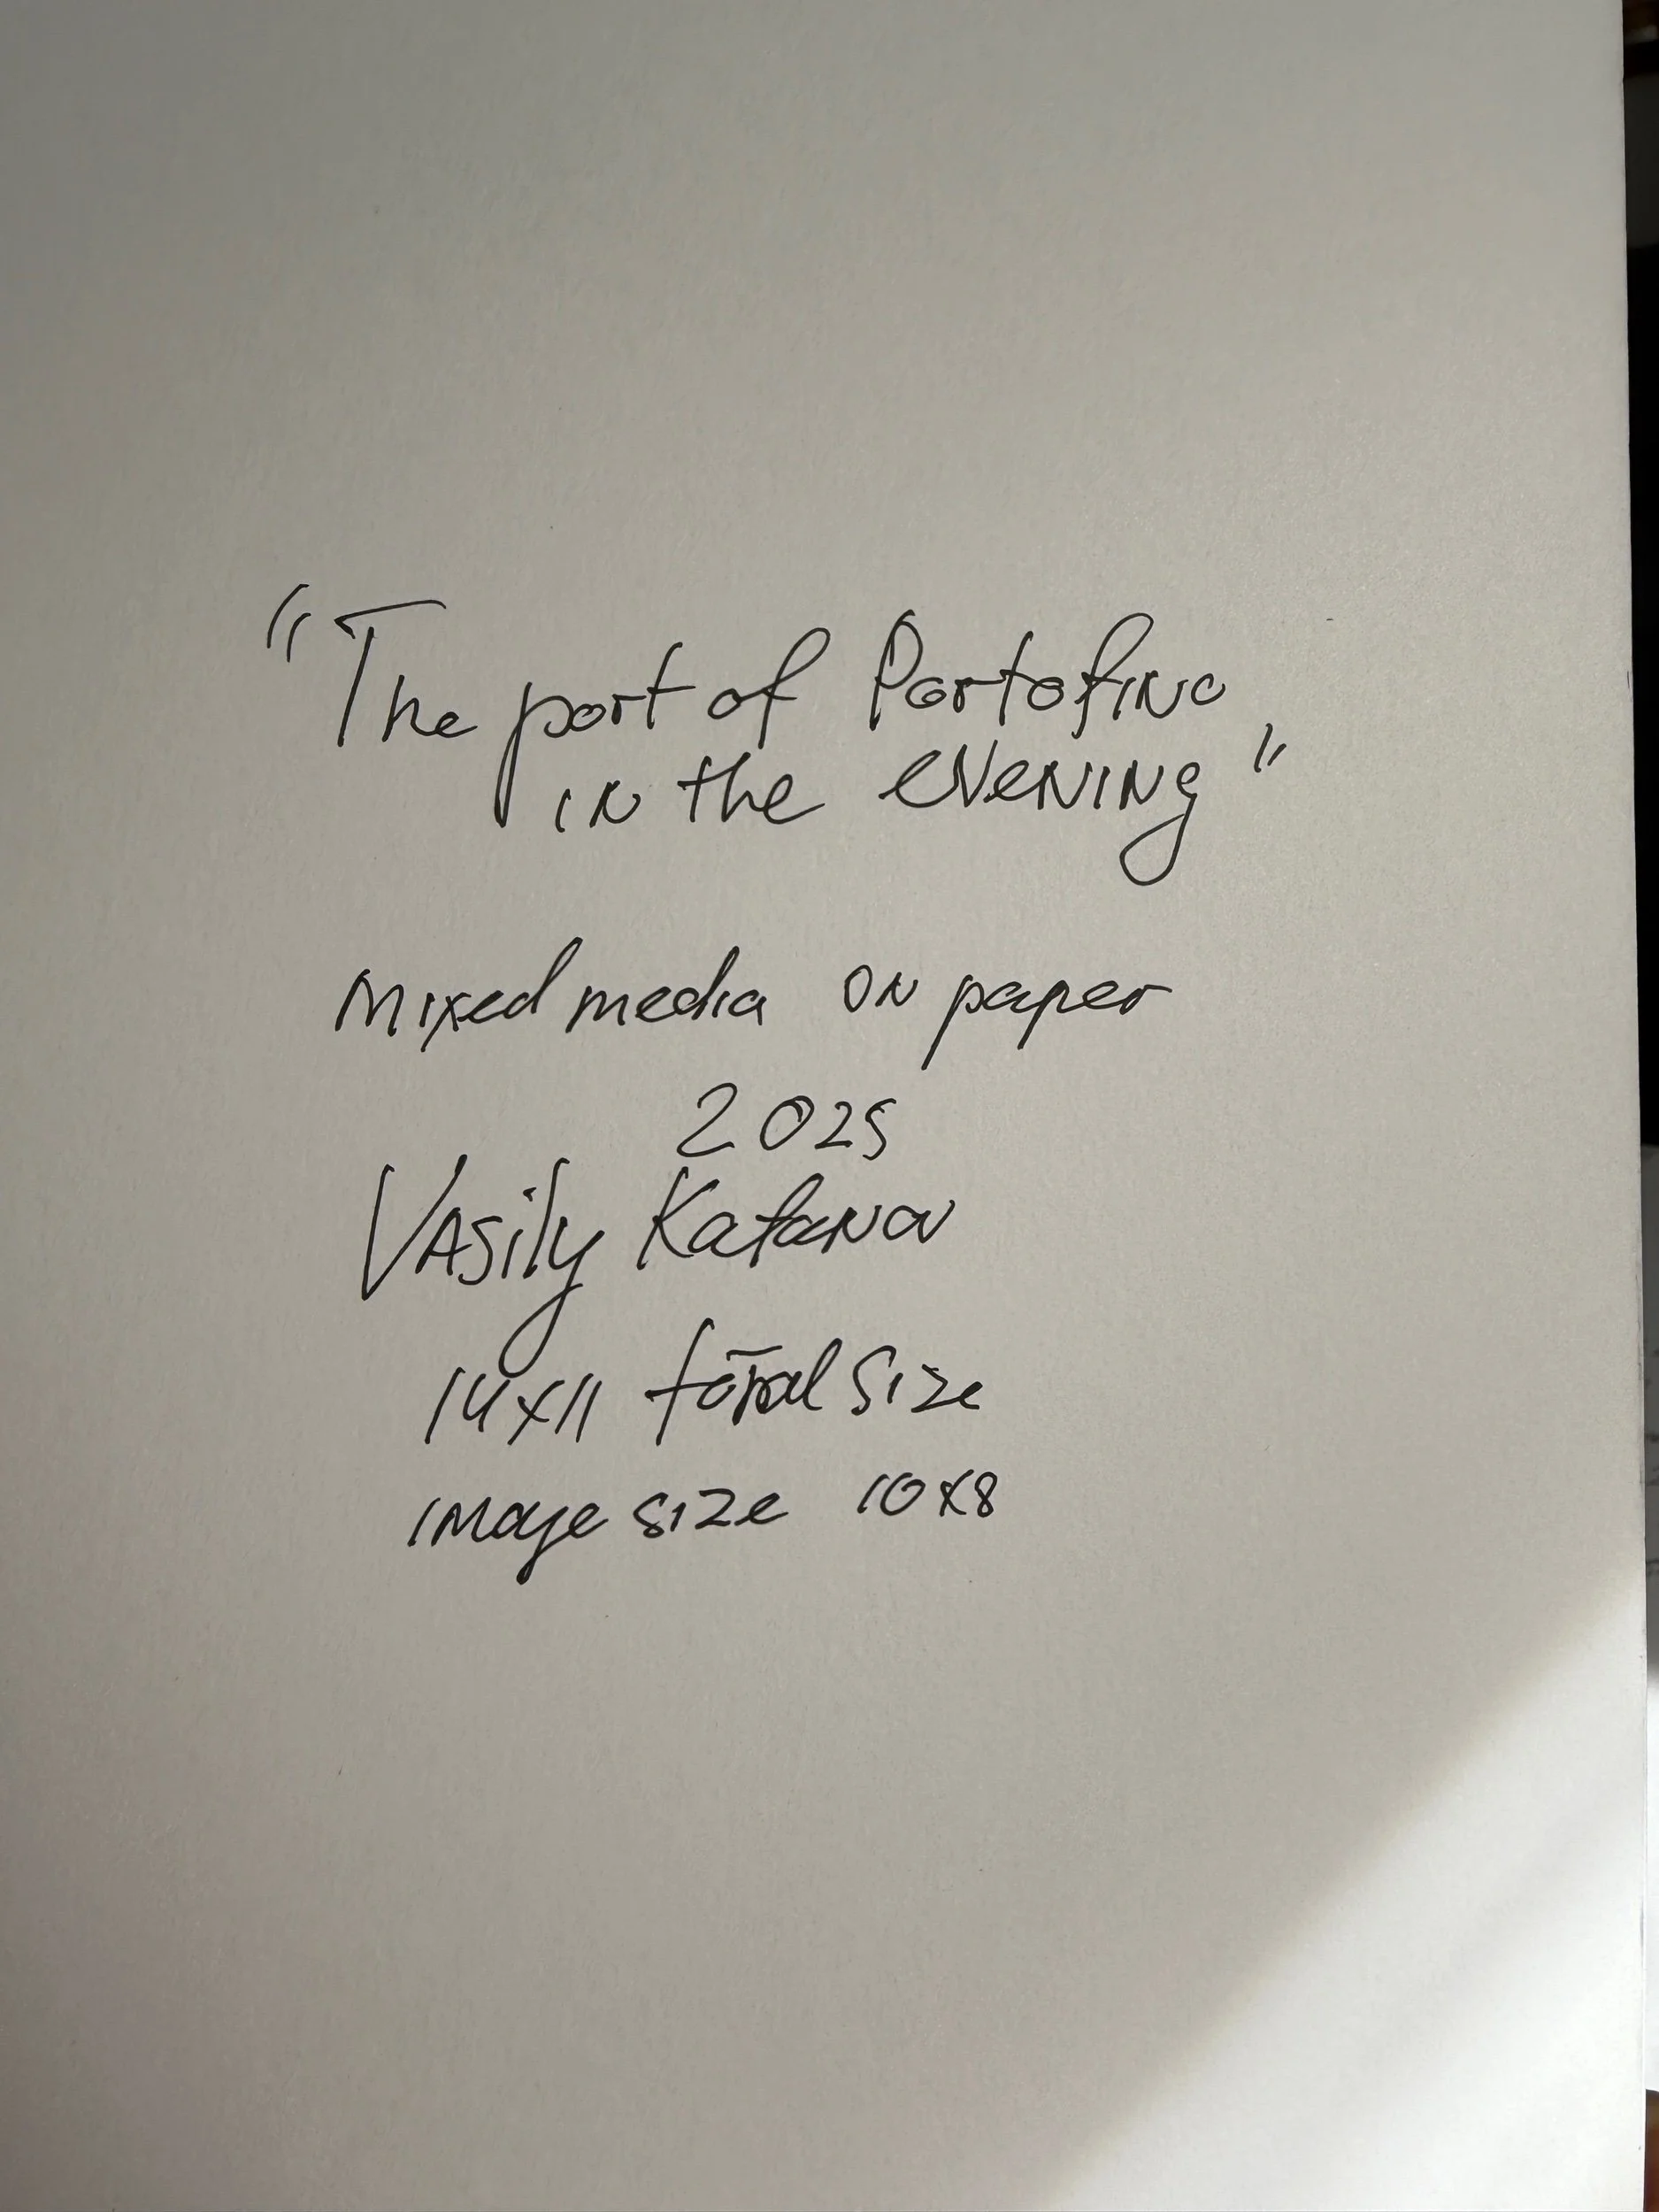 "The port of Portofino
in the evening"
Mixed media on paper
2025
VASily Katanov
14x11 total size
image size 10x8